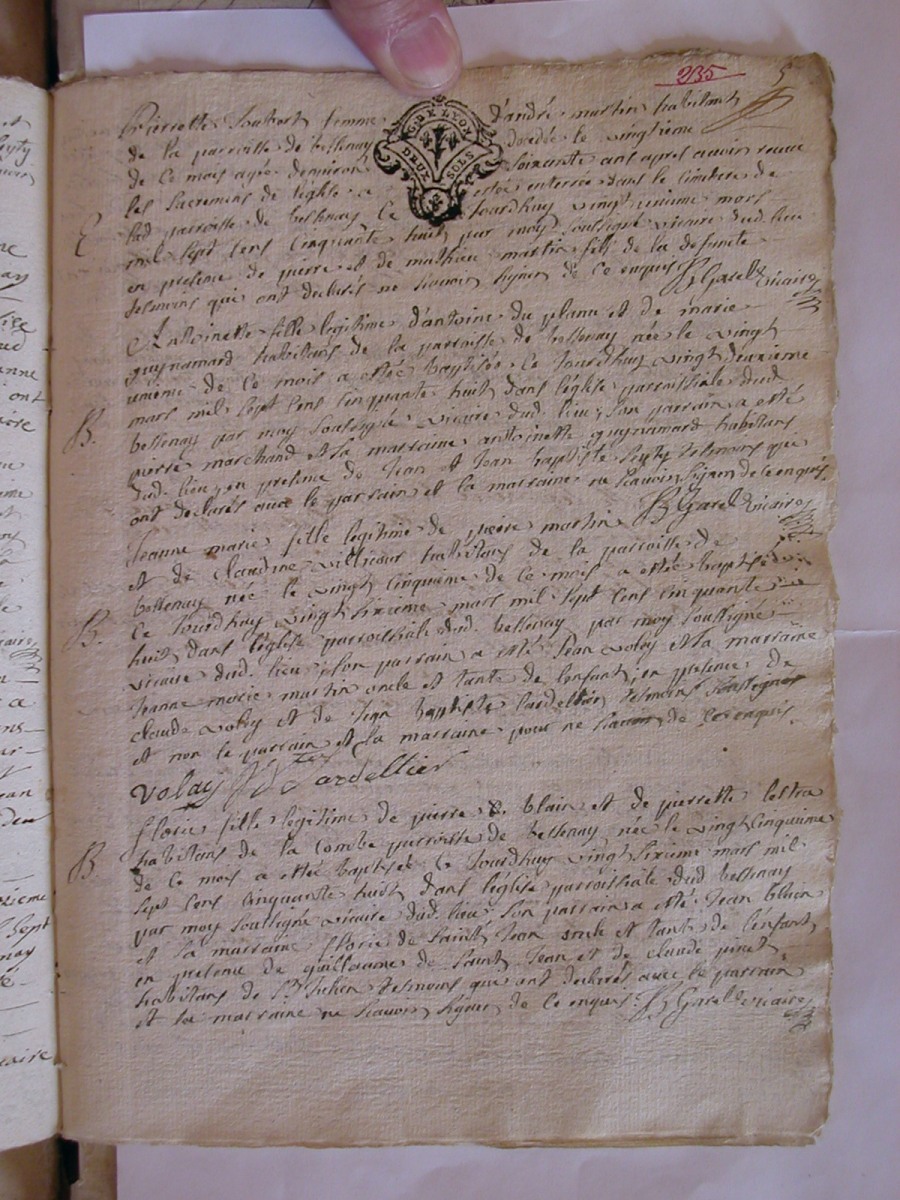 235 5
G. DE LYON
DEUX SOLS
Pierrette Loubert femme d'andré martin habitant
de la parroisse de bessenay decedée le vingtieme
de ce mois agée denviron soixante ans apres avoir receu
les sacremens de leglise a esté enterrée dans le cimetiere de
E lad parroisse de bessenay ce jourdhuy vingt unieme mars
mil sept cens cinquante huit par moy soussigné vicaire dud lieu
en presence de pierre et de mathieu martin fils de la defunte
tesmoins qui ont declarés ne scavoir signer de ce enquis Garel vicaire
Antoinette fille legitime d'antoine du planu et de marie
guynamard habitans de la parroisse de bessenay née le vingt
unieme de ce mois a estée baptisée ce jourdhuy vingt deuxieme
mars mil sept cens cinquante huit dans leglise parroissiale dud
B. bessenay par moy soussigné vicaire dud. lieu; son parrain a esté
pierre marchand et sa marraine antoinette guynamard habitans
dud. lieu, en presence de Jean et Jean baptiste tesmoins que
ont declarés avec le parrain et la marraine ne scavoir signer de ce enquis
Garel vicaire
Jeanne marie fille legitime de pierre martin
et de claudine villicour habitans de la parroisse de
bessenay née le vingt cinquieme de ce mois a estée baptisée
B. ce jourdhuy vingt sixieme mars mil sept cens cinquante
huit dans leglise parroissiale dud. bessenay par moy soussigné
vicaire dud. lieu; son parrain a esté Jean volay et sa marraine
Jeanne marie martin oncle et tante de lenfant, en presence de
claude volay et de Jean baptiste Lardellier tesmoins soussignés
et non le parrain et la marraine pour ne scavoir de ce enquis.
volay Lardellier
florie fille legitime de pierre blain et de pierrette lestra
habitans de la combe parroisse de bessenay, née le vingt cinquieme
B. de ce mois a estée baptisée ce jourdhuy vingt sixieme mars mil
sept cens cinquante huit dans leglise parroissiale dud bessenay
par moy soussigné vicaire dud. lieu: son parrain a esté Jean blain
et sa marraine florie de Saint Jean oncle et tante de l'enfant,
en presence de guillaume de Saint Jean et de claude pinet
habitans de St Julien tesmoins que ont declarés avec le parrain
et la marraine ne scavoir signer de ce enquis: Garel vicaire